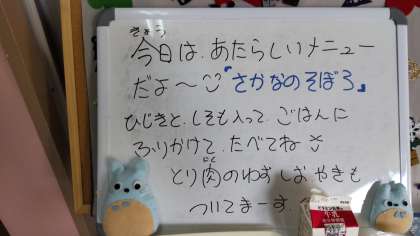 きょう
今日は、あたらしいメニュー
だよ〜「さかなのそぼろ」
ひじきと、しそも入って、ごはんに
ふりかけて、たべてね
にく
とり肉のねぎしおやきも
ついてまーす。
牛乳